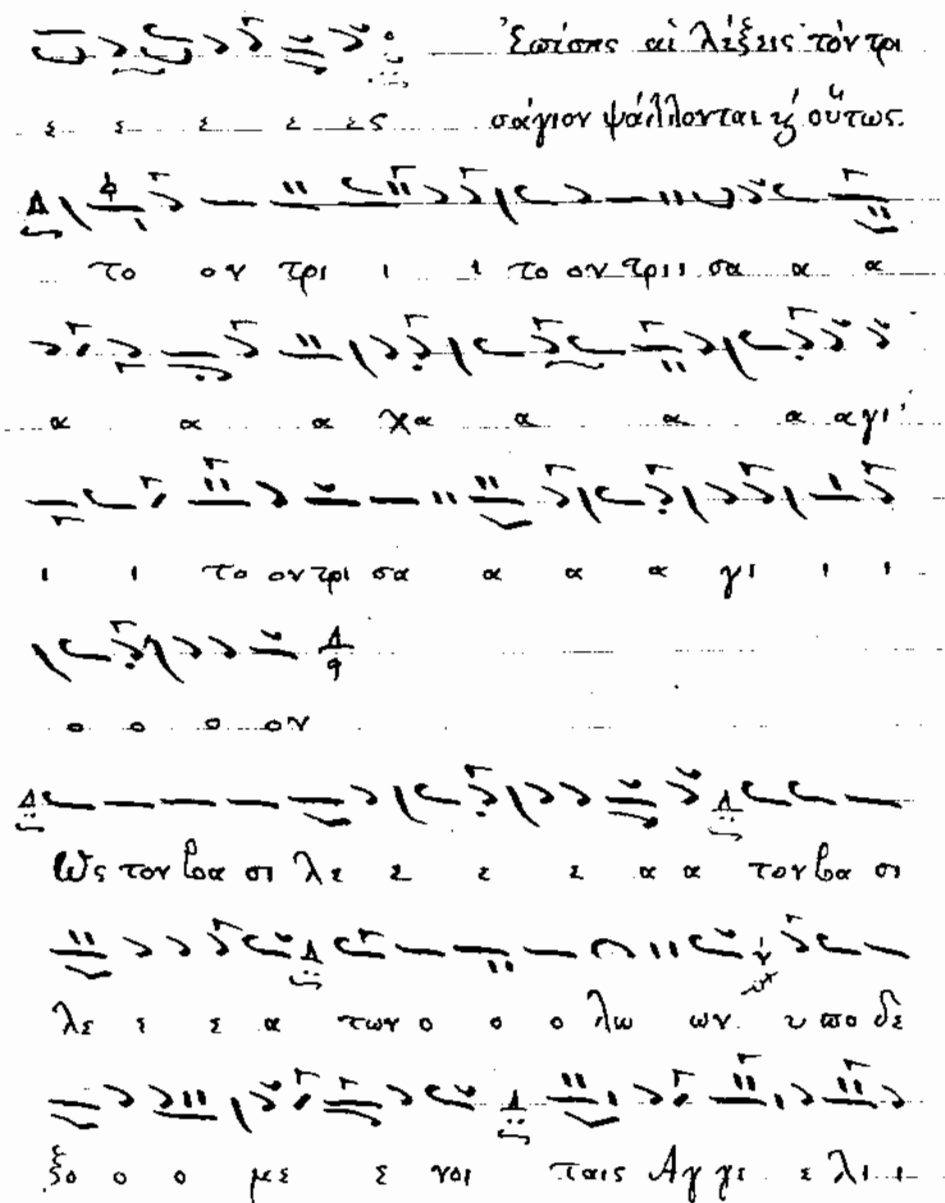 Ἐπίσης αἱ λέξεις τόν τρι
ε ε ε ε ες σάγιον ψάλλονται ϗ́ οὕτως.
το ον τρι ι ι το ον τρι ι σα α α
α α α χα α α α α γι
ι ι το ον τρι σα α α α γι ι ι
ο ο ο ον
Ως τον βα σι λε ε ε ε α α τον βα σι
λε ε ε α των ο ο ο λω ων υ πο δε
ξο ο ο με ε νοι ταις Αγ γε ε λι ι